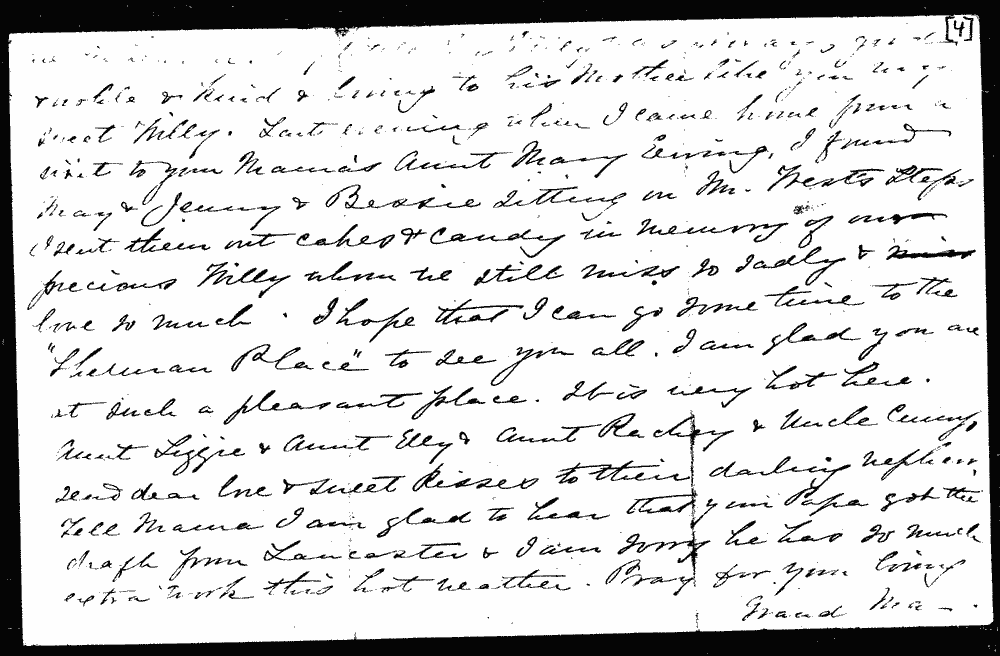 [4]
always good
& noble & kind & loving to his Mother like you my
sweet Willy. Last evening when I came home from a
visit to your Mama's Aunt Mary Ewing, I found
May & Jenny & Bessie sitting on Mr. West's steps
I sent them out cakes & candy in memory of our
precious Willy whom we still miss so sadly & miss
love so much. I hope that I can go some time to the
"Sherman Place" to see you all. I am glad you are
at such a pleasant place. It is very hot here.
Aunt Lizzie & Aunt Elly & Aunt Rachey & Uncle Cump,
send dear love & sweet kisses to their darling nephew.
Tell Mama I am glad to hear that your Papa got the
draft from Lancaster & I am sorry he has so much
extra work this hot weather. Pray for your loving
Grand Ma -.